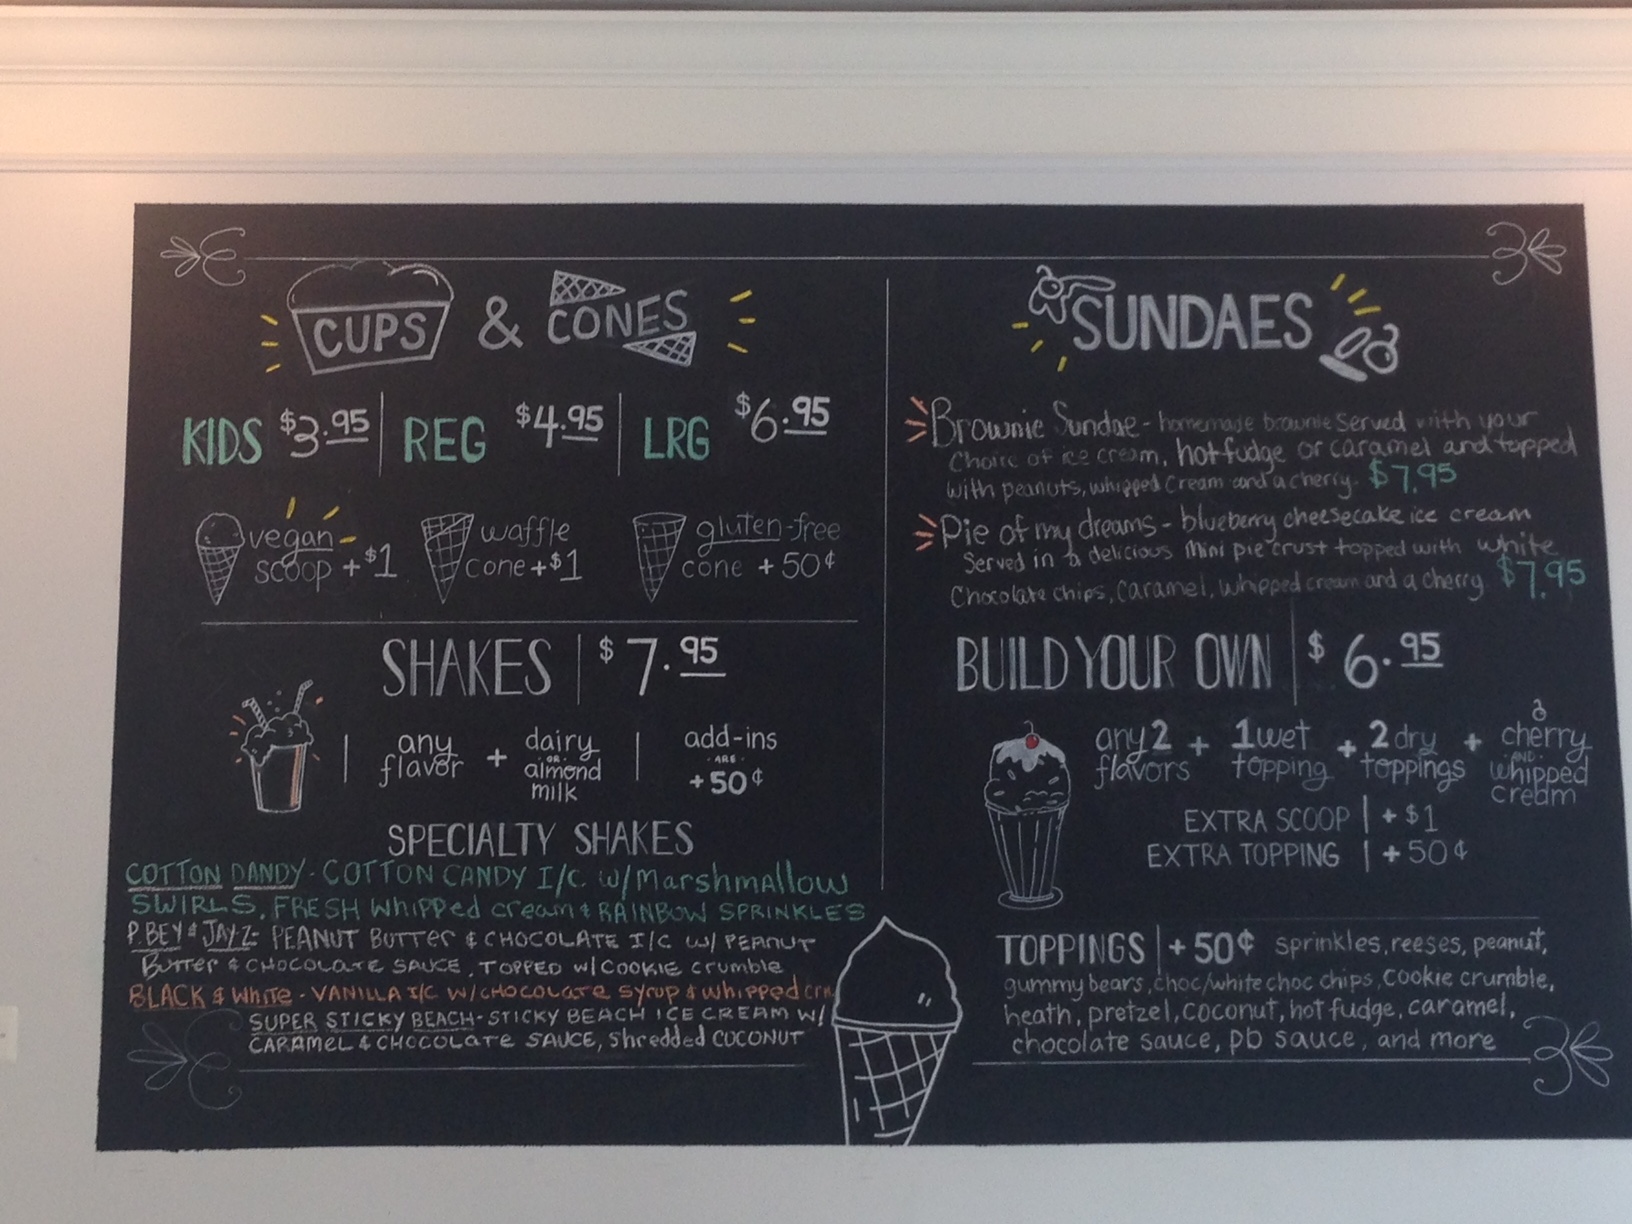 CUPS & CONES
KIDS $3.95 | REG $4.95 | LRG $6.95
vegan scoop +$1
waffle cone +$1
gluten-free cone +50¢
SHAKES | $7.95
any flavor + dairy OR almond milk | add-ins ARE +50¢
SPECIALTY SHAKES
COTTON DANDY - COTTON CANDY I/C. w/Marshmallow
SWIRLS, FRESH Whipped cream & RAINBOW SPRINKLES
P.BEY & JAYZ- PEANUT BUTTER & CHOCOLATE I/C W/ PEANUT
BUTTER & CHOCOLATE SAUCE, TOPPED W/COOKIE crumble
BLACK & White - VANILLA I/C W/CHOCOLATE SYRUP & Whipped crm
SUPER STICKY BEACH-STICKY BEACH ICE CREAM W/
CARAMEL & CHOCOLATE SAUCE, Shredded COCONUT
SUNDAES
Brownie Sundae - homemade brownie Served with your
Choice of ice cream, hot fudge or caramel and topped
with peanuts, whipped cream and a cherry. $7.95
Pie of my dreams - blueberry cheesecake ice cream
Served in a delicious mini pie crust topped with white
Chocolate chips, caramel, whipped cream and a cherry $7.95
BUILD YOUR OWN | $6.95
any 2 flavors + 1 wet topping + 2 dry toppings + cherry AND whipped cream
EXTRA SCOOP | + $1
EXTRA TOPPING | + 50¢
TOPPINGS | + 50¢ sprinkles, reeses, peanut,
gummy bears, choc/white choc chips, cookie crumble,
heath, pretzel, coconut, hot fudge, caramel,
chocolate sauce, pb sauce, and more